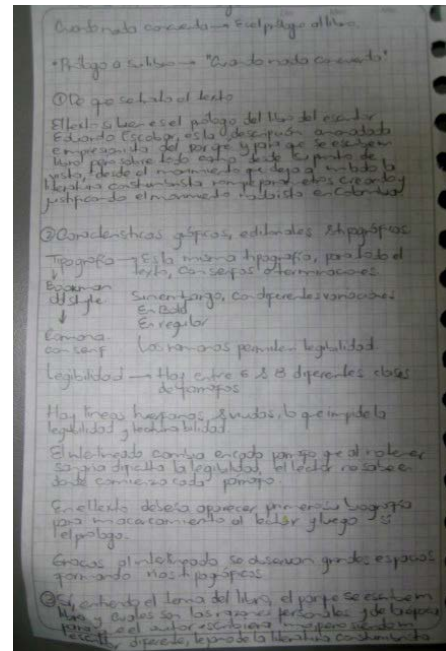 Cuando nada concuerda → Es el prólogo al libro.
• Prólogo a su libro → "Cuando nada concuerda"
① De que se trata el texto
El texto si bien es el prólogo del libro del escritor
Eduardo Escobar, es la descripción anonadada
empresionista del porque y para que se escribe un
libro, pero sobre todo como desde su punto de
vista, desde el movimiento que deja a un lado la
literatura constumbrista rompe parametros creando y
justificando el movimiento nadaista en Colombia
② Caracteristicas gráficas, editoriales & tipográficas
Tipografía → Es la misma tipografía, para todo el
texto, con serifas o terminaciones.
Bookman
old style
Sin embargo, con diferentes variaciones
En Bold
En regular
Romana
con serif
Las romanas permiten legibilidad.
Legibilidad → Hay entre 6 & 8 diferentes clases
de parrafos
Hay lineas huerfanas & viudas, lo que impide la
legibilidad y lecturabilidad.
El interlineado cambia en cada parrafo que al no tener
sangria dificulta la legibilidad, el lector no sabe en
donde comienza cada parrafo.
En el texto debería aparecer primero la biografía
para un acercamiento al lector y luego si
el prólogo.
Gracias al interlineado, se observan grandes espacios
formando rios tipográficos
③ Sí, entiendo el tema del libro, el porque se escribe un
libro y cuales son las razones personales y de la época
para que el autor escribiera pero siendo un
escritor diferente, lejano de la literatura constumbrista